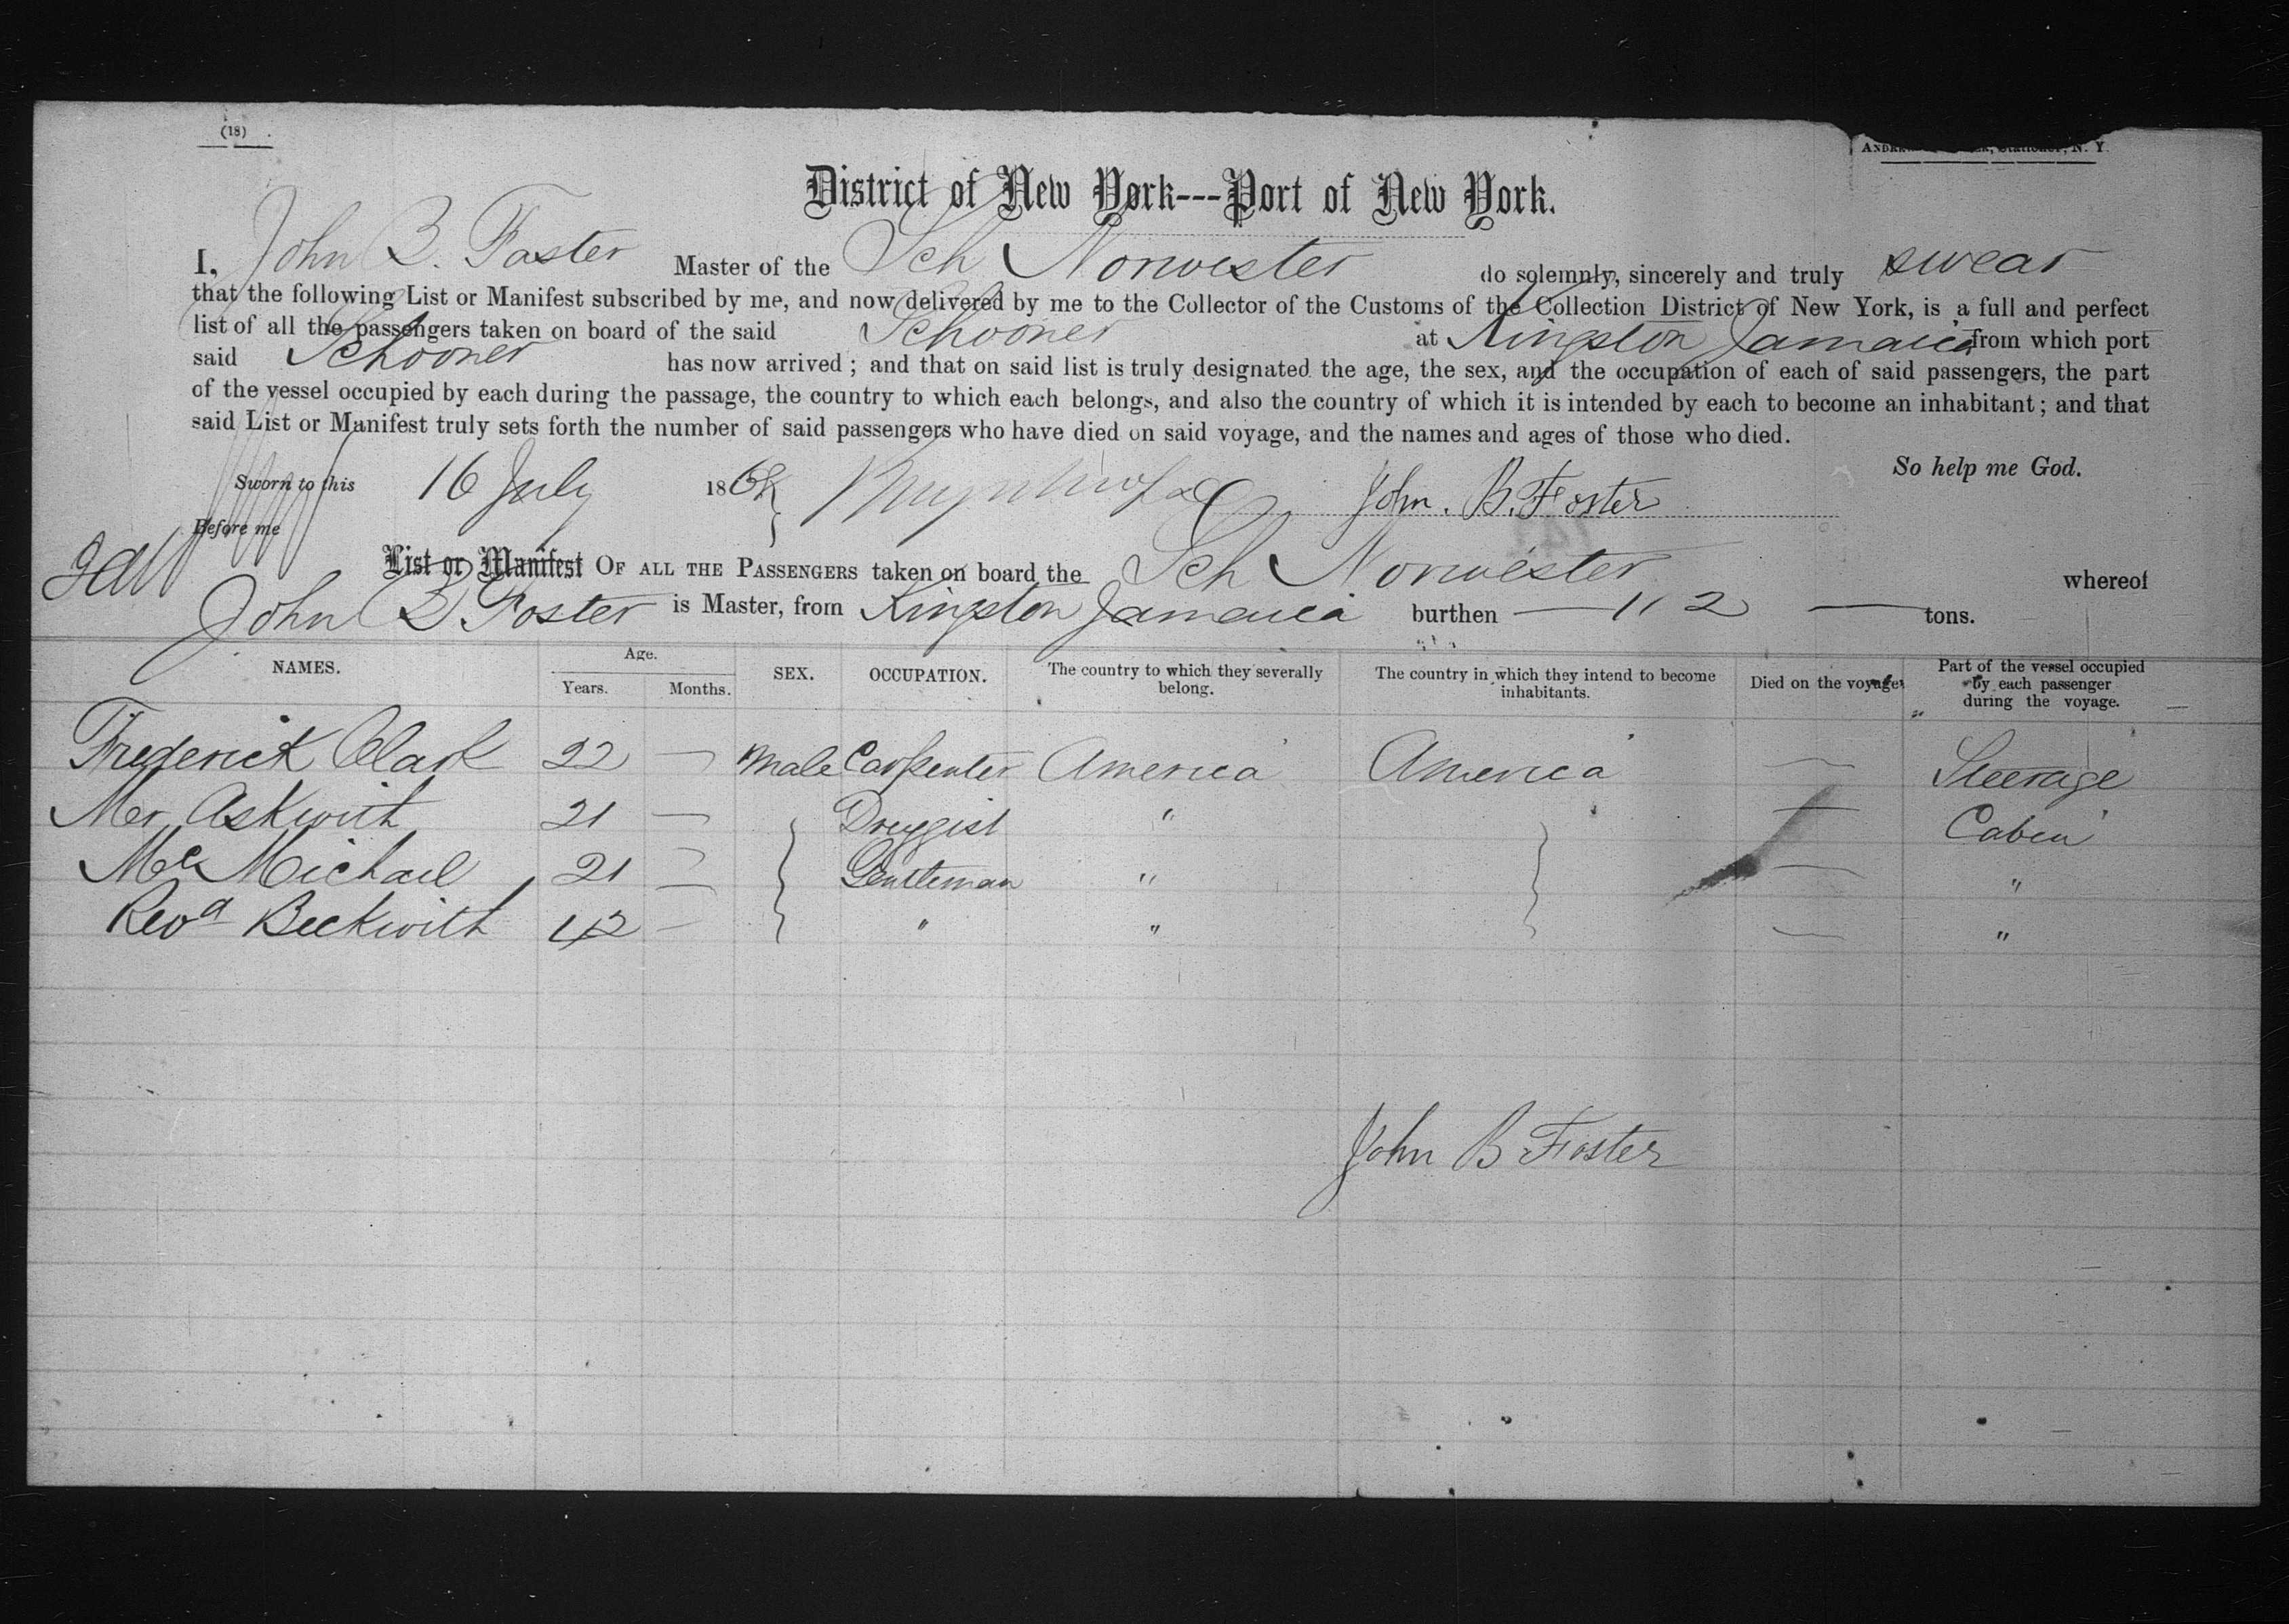 (18)
Stationer, N. Y.
District of New York---Port of New York.
I, John B. Foster Master of the Sch Norwester do solemnly, sincerely and truly swear
that the following List or Manifest subscribed by me, and now delivered by me to the Collector of the Customs of the Collection District of New York, is a full and perfect
list of all the passengers taken on board of the said Schooner at Kingston Jamaica from which port
said Schooner has now arrived ; and that on said list is truly designated the age, the sex, and the occupation of each of said passengers, the part
of the vessel occupied by each during the passage, the country to which each belongs, and also the country of which it is intended by each to become an inhabitant ; and that
said List or Manifest truly sets forth the number of said passengers who have died on said voyage, and the names and ages of those who died.
So help me God.
Sworn to this 16 July 186 John. B. Foster
Before me
List or Manifest OF ALL THE PASSENGERS taken on board the Sch Norwester whereof
John B Foster is Master, from Kingston Jamaica burthen — 112 — tons.
NAMES. Age. Years. Months. SEX. OCCUPATION. The country to which they severally belong. The country in which they intend to become inhabitants. Died on the voyage. Part of the vessel occupied by each passenger during the voyage.
Frederick Clark 22 — Male Carpenter America America — Steerage
Mr Askwith 21 — Druggist " — Cabin
Mc Michael 21 — Gentleman " — "
Revd Beckwith 42 — " " — "
John B Foster